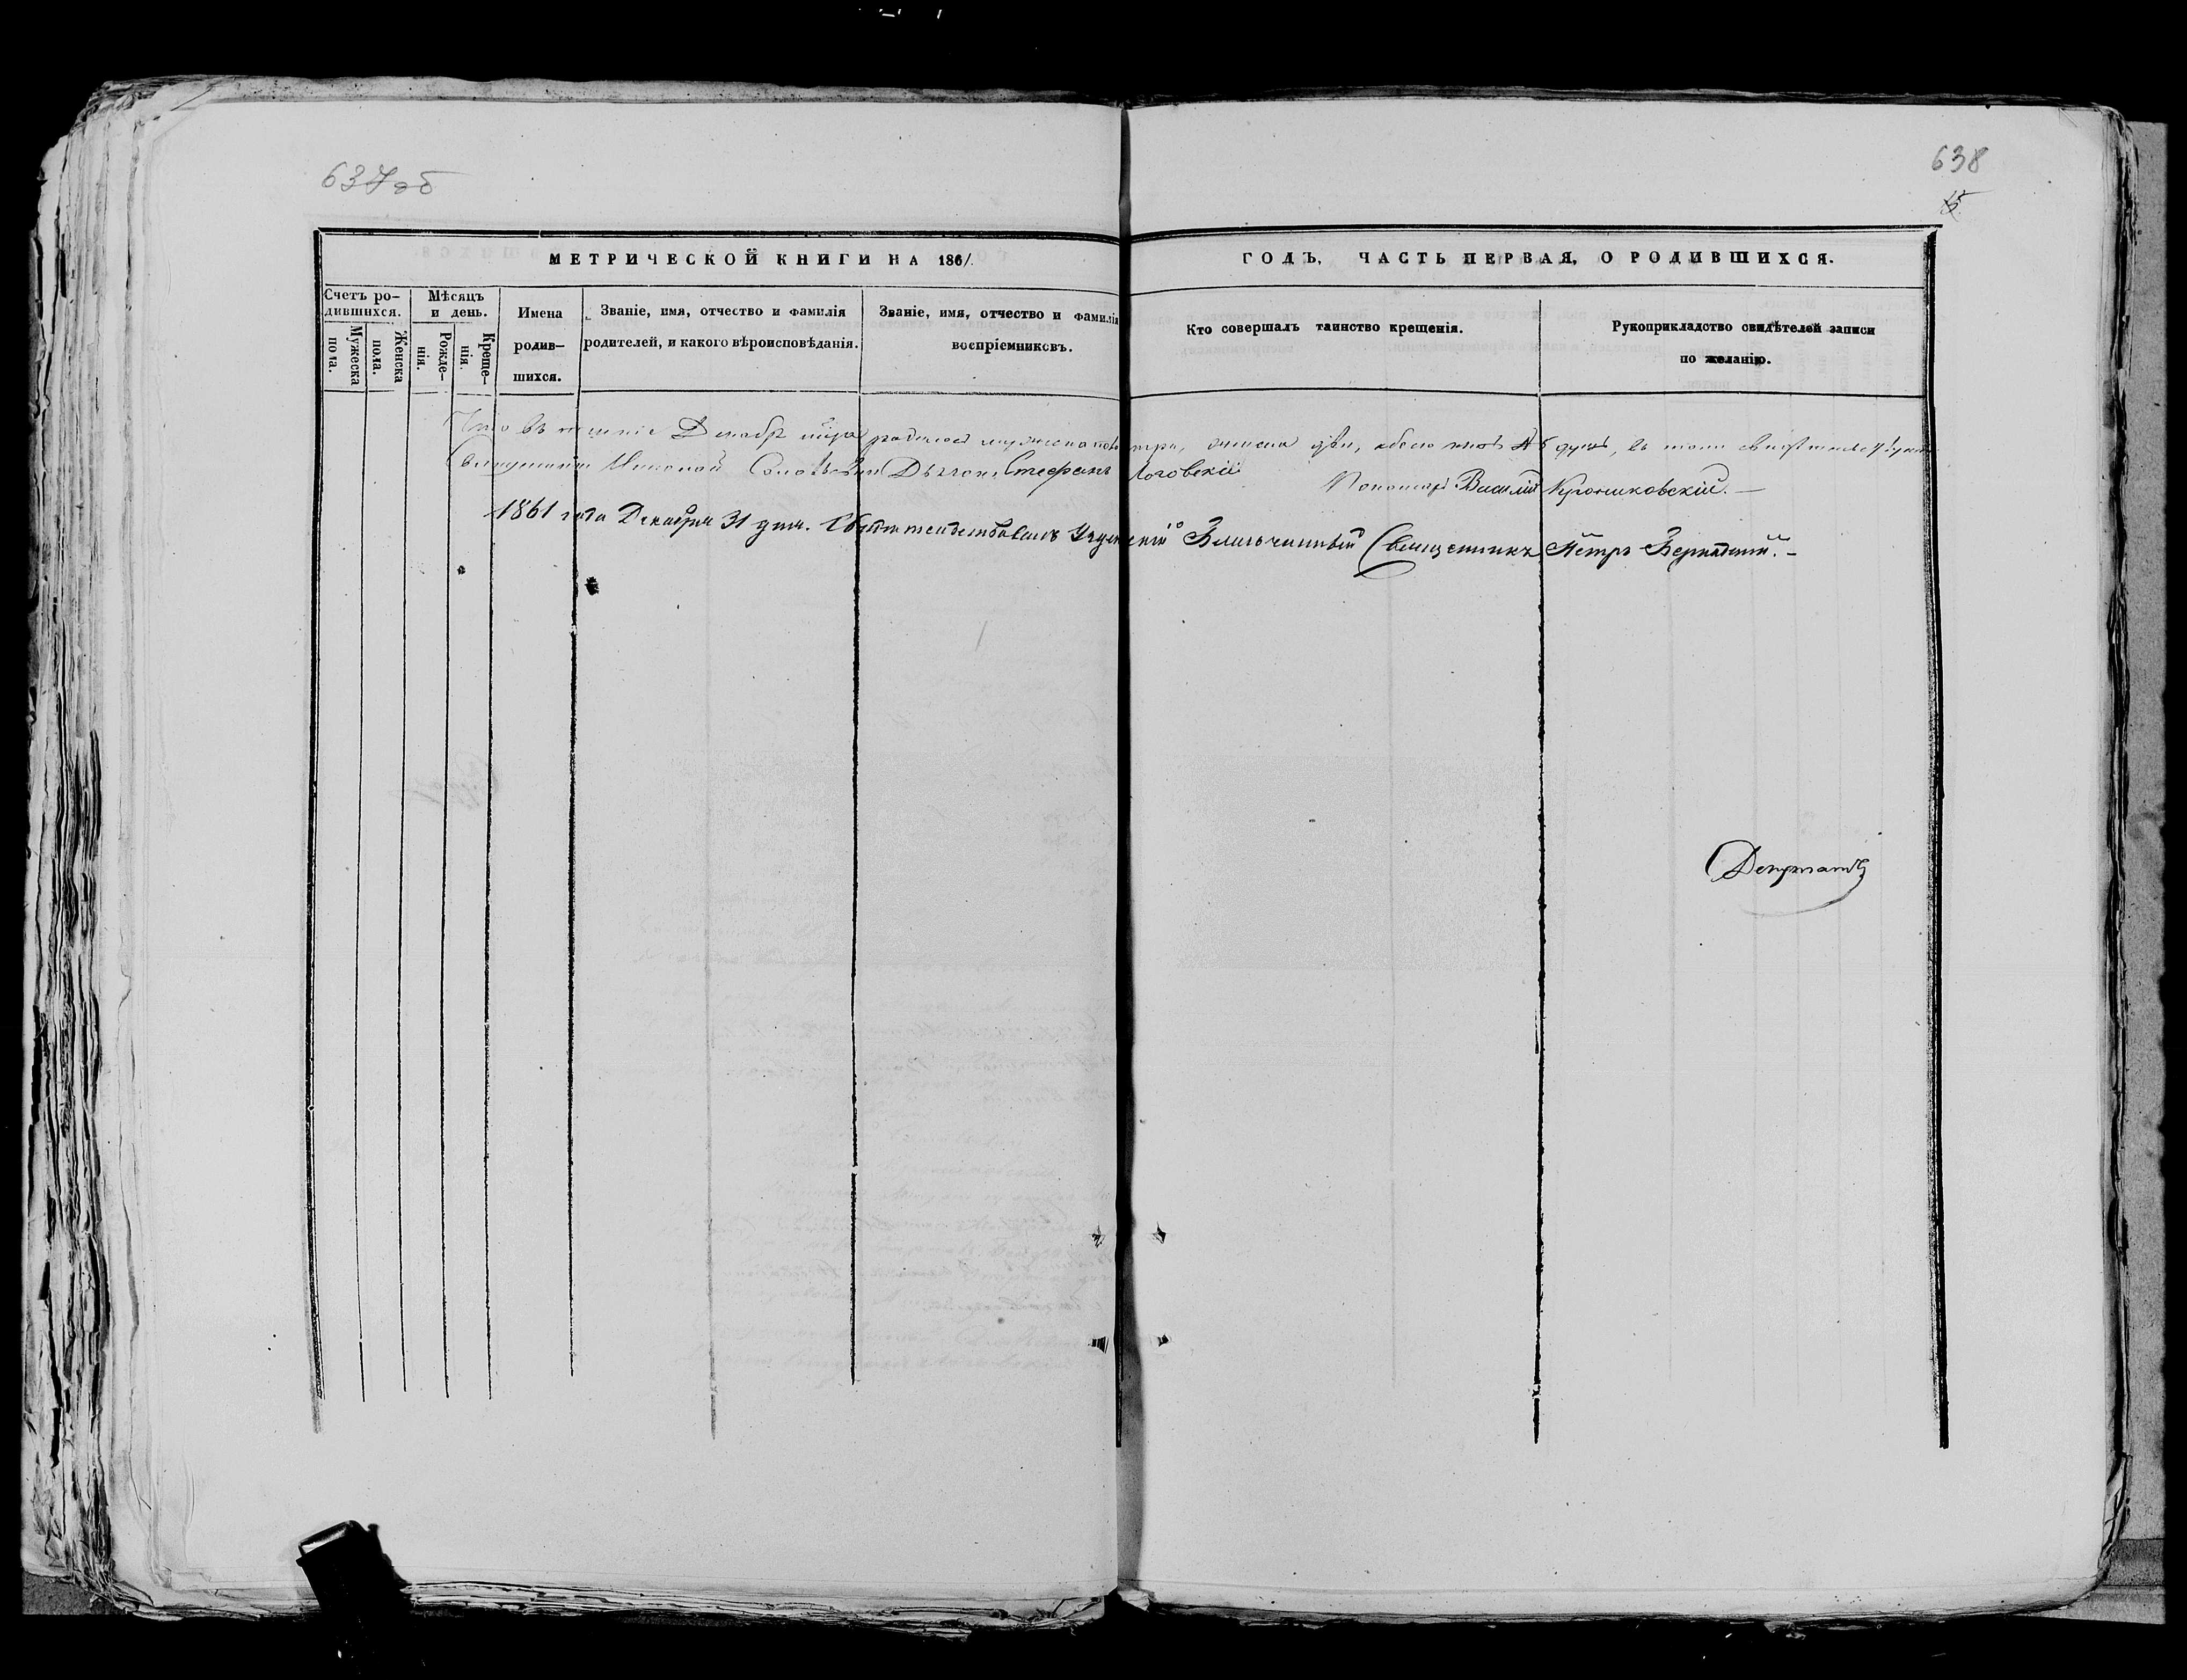 637 об
638
15
МЕТРИЧЕСКОЙ КНИГИ НА 1861.
ГОДЪ, ЧАСТЬ ПЕРВАЯ, О РОДИВШИХСЯ.
Счетъ родившихся.
Мужеска пола.
Женска пола.
Мѣсяцъ и день.
Рожденія.
Крещенія.
Имена родившихся.
Званіе, имя, отчество и фамилія
родителей, и какого вѣроисповѣданія.
Званіе, имя, отчество и фамилія
воспріемниковъ.
Кто совершалъ таинство крещенія.
Рукоприкладство свидѣтелей записи
по желанію.
Что въ теченіе Декабр мѣра родилось мужеска пола три, женска двѣ, обоего пола 5 душъ, въ томъ
Священникъ Николай Дьяконъ Стефанъ Логовскій
Пономарь Василій
1861 года Декабря 31 дня. Свидѣтельствовалъ Благочинный Священникъ Петръ
Депутатъ